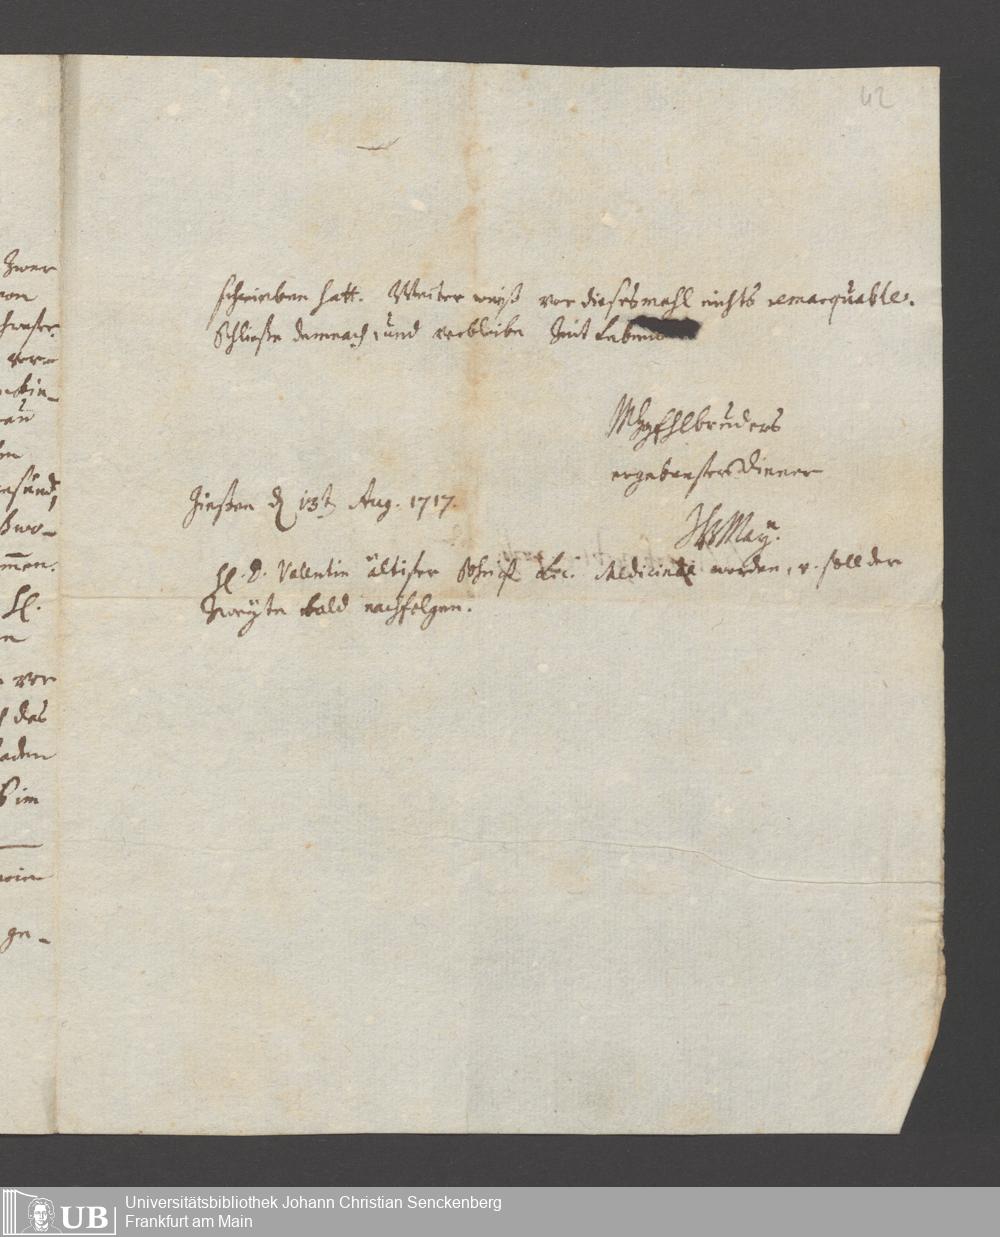 42
schrieben hatt. Weiter weiß vor diesesmahl nichts remarquables.
Schließe demnach, und verbleibe Zeit Lebens
MhgEhlbruders
ergebenster Diener
May
Gießen d 13t Aug. 1717.
H. D. Valentin ältister Sohn ist Lic. Medicinae worden, v. soll der
Zweyte bald nachfolgen.
Zwer
von
ver-
gesund,
Hl.
vor
das
im
ge-
UB
Universitätsbibliothek Johann Christian Senckenberg
Frankfurt am Main